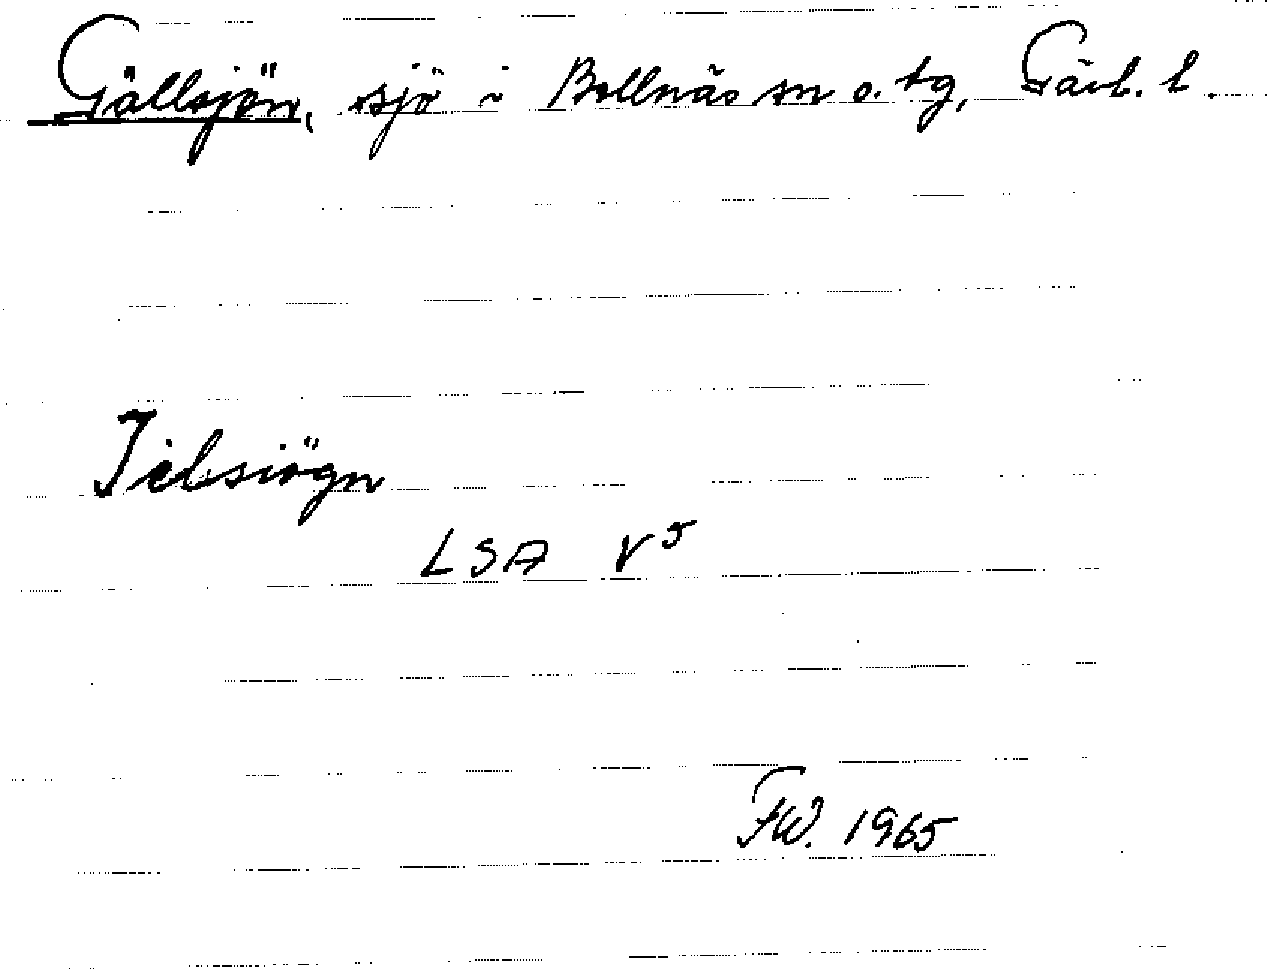 Gällsjön, sjö i Bollnäs sn o. tg, Gävl. l.
Jelsiögn
LSA V 5
FW. 1965